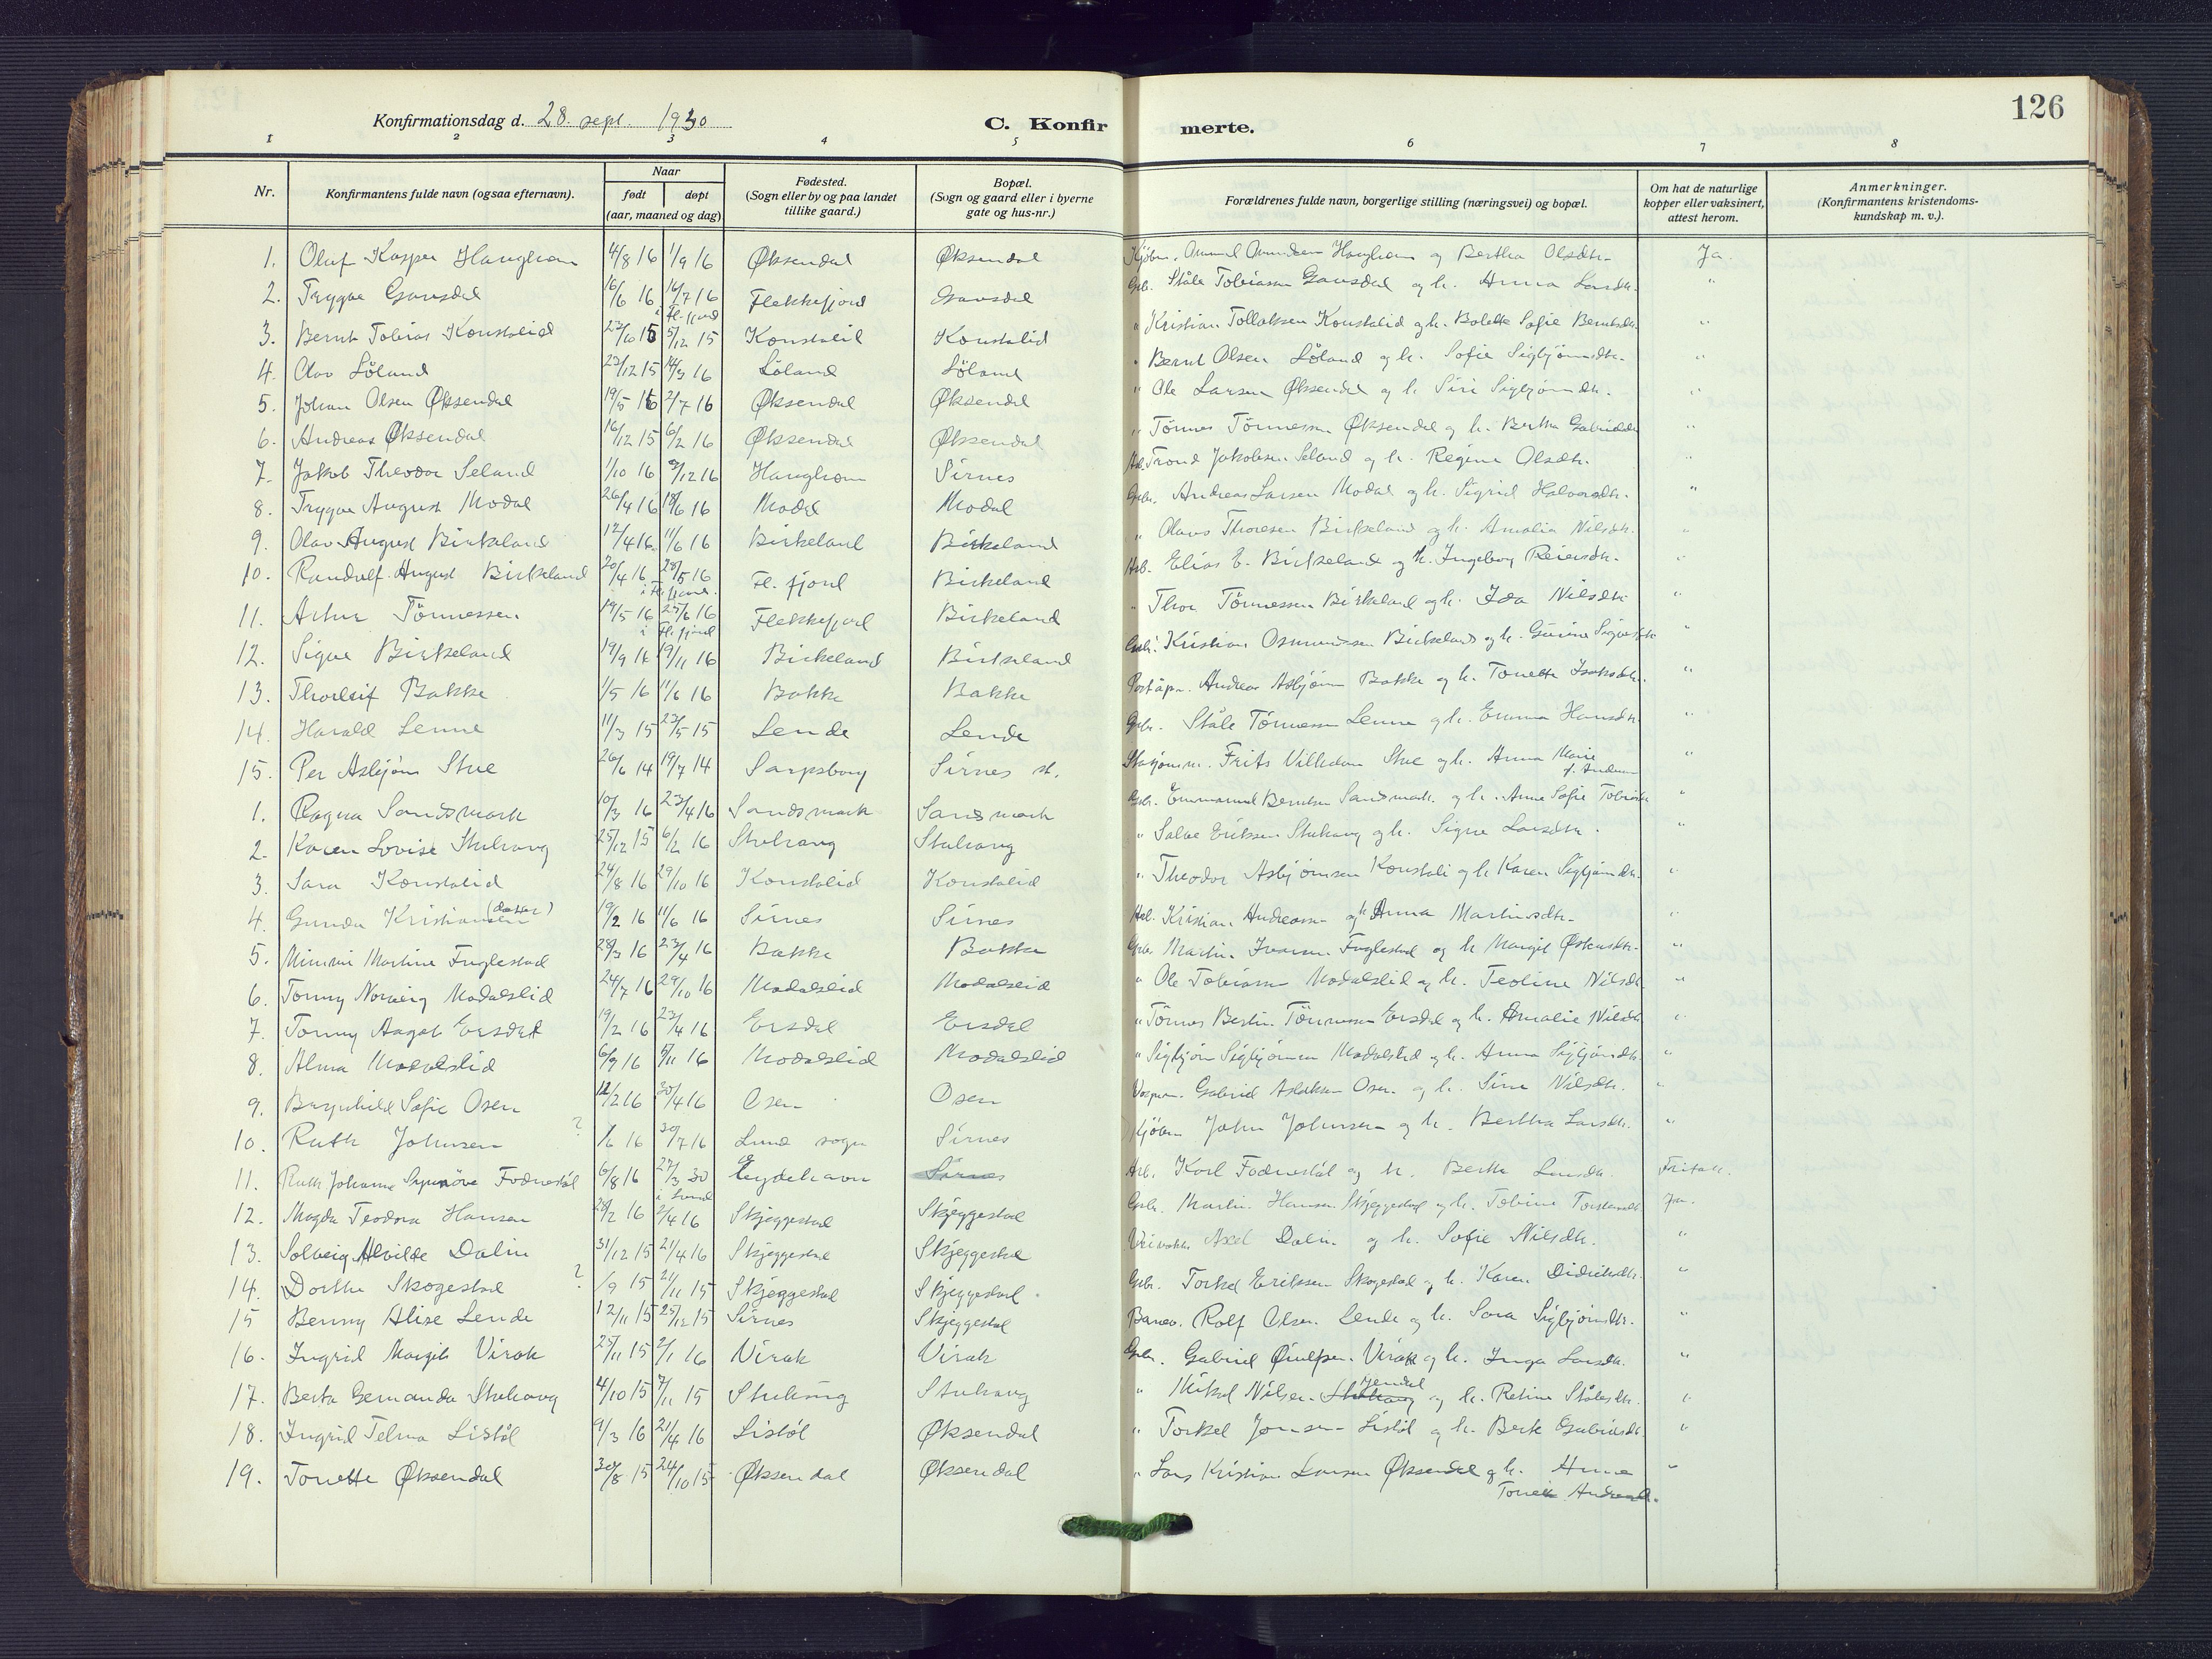 126
Konfirmationsdag d. 28. sept. 1930
C. Konfirmerte.
1 2 3 4 5 6 7 8
Nr.
Konfirmantens fulde navn (ogsaa efternavn).
Naar
født
døpt
(aar, maaned og dag)
Fødested.
(Sogn eller by og paa landet
tillike gaard.)
Bopæl.
(Sogn og gaard eller i byerne
gate og hus-nr.)
Forældrenes fulde navn, borgerlige stilling (næringsvei) og bopæl.
Om hat de naturlige
kopper eller vaksinert,
attest herom.
Anmerkninger.
(Konfirmantens kristendoms-
kundskap m. v.).
1. Oluf Kasper Haughom 4/8 16 1/9 16 Øksendal Øksendal Kjøbm. Haughom og Bertha Olsdtr. Ja.
2. Trygve Gausdal 16/6 16 16/7 16 i Fl.fjord Flekkefjord Gausdal Gbr. Ståle Tobiassen Gausdal og h. Anna Larsdtr. "
3. Bernt Tobias Konstalid 23/10 15 5/12 15 Konstalid Konstalid " Kristian Tollaksen Konstalid og h. Bolette Sofie Berntsdtr. "
4. Olav Löland 23/12 15 14/3 16 Löland Löland " Bernt Olsen Löland og h. Sofie Sigbjörnsdtr. "
5. Johan Olsen Øksendal 19/5 16 2/7 16 Øksendal Øksendal " Ole Larsen Øksendal og h. Siri Sigbjörnsdtr. "
6. Andreas Øksendal 16/12 15 6/2 16 Øksendal Øksendal " Tönnes Tönnessen Øksendal og h. Bertha Gabrielsdtr "
7. Jakob Theodor Seland 1/10 16 9/12 16 Haughom Sirnes Arb. Trond Jakobsen Seland og h. Regine Olsdtr. "
8. Trygve August Modal 26/4 16 18/6 16 Modal Modal Gbr. Andreas Larsen Modal og h. Sigrid Halvorsdtr. "
9. Olav August Birkeland 12/4 16 11/6 16 Birkeland Birkeland " Olavs Thorsen Birkeland og h. Amalia Nilsdtr. "
10. Randulf August Birkeland 20/4 16 28/5 16 i Fl.fjord. Fl. fjord Birkeland Arb. Elias E. Birkeland og h. Ingeborg Reiersdtr. "
11. Artur Tönnessen 19/5 16 25/6 16 i Fl. fjord Flekkefjord Birkeland " Thor Tönnessen Birkeland og h. Ida Nilsdtr "
12. Signe Birkeland 19/9 16 19/11 16 Birkeland Birkeland Gbr. Kristian Osmundsen Birkeland og h. Gurine "
13. Thorleif Bakke 1/5 16 11/6 16 Bakke Bakke Poståpn. Andreas Asbjörnsen Bakke og h. Tonette Isaksdtr. "
14. Harald Lenne 11/3 15 23/5 15 Lende Lende Gbr. Ståle Tönnessen Lenne og h. Emma Hansdtr. "
15. Per Asbjörn Stue 26/6 14 19/7 14 Sarpsborg Sirnes st. Frits Vilhelm Stue og h. Anna Marie "
1. Ragna Sandsmark 10/3 16 23/4 16 Sandsmark Sandsmark Gbr. Emmanuel Berntsen Sandsmark. og h. Anne Sofie "
2. Karen Lovise Stuhaug 25/12 15 6/2 16 Stuhaug Stuhaug " Salve Eriksen Stuhaug og h. Signe Larsdtr. "
3. Sara Konstalid 24/8 16 29/10 16 Konstalid Konstalid " Theodor Asbjörnsen Konstali og h Karen Sigbjörnsdtr. "
4. Gunda Kristiansen (datter) 19/2 16 11/6 16 Sirnes Sirnes Arb. Kristian Andreassen og h Anna Martinsdtr. "
5. Minnie Martine Fuglestad 28/3 16 23/4 16 Bakke Bakke Gbr. Martin Iversen Fuglestad og h Margit "
6. Tonny Norveig Modalslid 24/7 16 29/10 16 Modalslid Modalslid " Ole Tobiassen Modalslid og h. Teoline Nilsdtr "
7. Tonny Aagot Ersdal 19/2 16 23/4 16 Ersdal Ersdal " Tönnes Bertin Tönnessen Ersdal og h. Amalie Nilsdtr "
8. Alma Modalslid 6/9 16 5/11 16 Modalslid Modalslid " Sigbjörn Sigbjörnsen Modalslid og h. Anna Sigbjörnsdtr. "
9. Borghild Sofie Osen 12/2 16 30/4 16 Osen Osen Gabriel Aslaksen Osen og h. Sina Nilsdtr. "
10. Ruth Johnsen ? /6 16 30/7 16 Lund sogn Sirnes Kjöbm John Johnsen og h. Bertha Larsdtr. "
11. Ruth Johanne Synnöve Fodnestöl 6/8 16 27/3 30 i Lund Eydehavn Sirnes Arb. Karl Fodnestöl og h. Berta Larsdtr. Fritak.
12. Magda Teodora Hansen 28/2 16 2/4 16 Skjeggestad Skjeggestad Gbr. Martin Hansen Skjeggestad og h. Tobine Torstensdtr. Ja.
13. Solveig Alvilde Dalin 31/12 15 21/4 16 Skjeggestad Skjeggestad Axel Dalin og h. Sofie Nilsdtr. "
14. Dorthe Skogestad ? /9 15 21/11 15 Skjeggestad Skjeggestad. Gbr. Torkel Eriksen Skogestad og h. Karen Didriksdtr. "
15 Benny Alise Lende 12/11 15 25/12 15 Sirnes Skjeggestad Banev. Rolf Olsen Lende og h. Sara Sigbjörnsdtr. "
16. Ingrid Margit Virak 25/11 15 2/1 16 Virak Virak Gbr. Gabriel Virak og h. Inga Larsdtr. "
17. Berta Gemanda Stuhaug 4/10 15 7/11 15 Stuhaug Stuhaug " Mikal Nilsen Stuhaug og h. Retine Stålesdtr. "
18. Ingrid Telma Listöl 9/3 16 21/4 16 Listöl Øksendal " Torkel Jonsen Listöl og h. Berte Gabrielsdtr. "
19. Tonette Øksendal 30/8 15 24/10 15 Øksendal Øksendal " Lars Kristian Larsen Øksendal og h. Anna "
Tonette